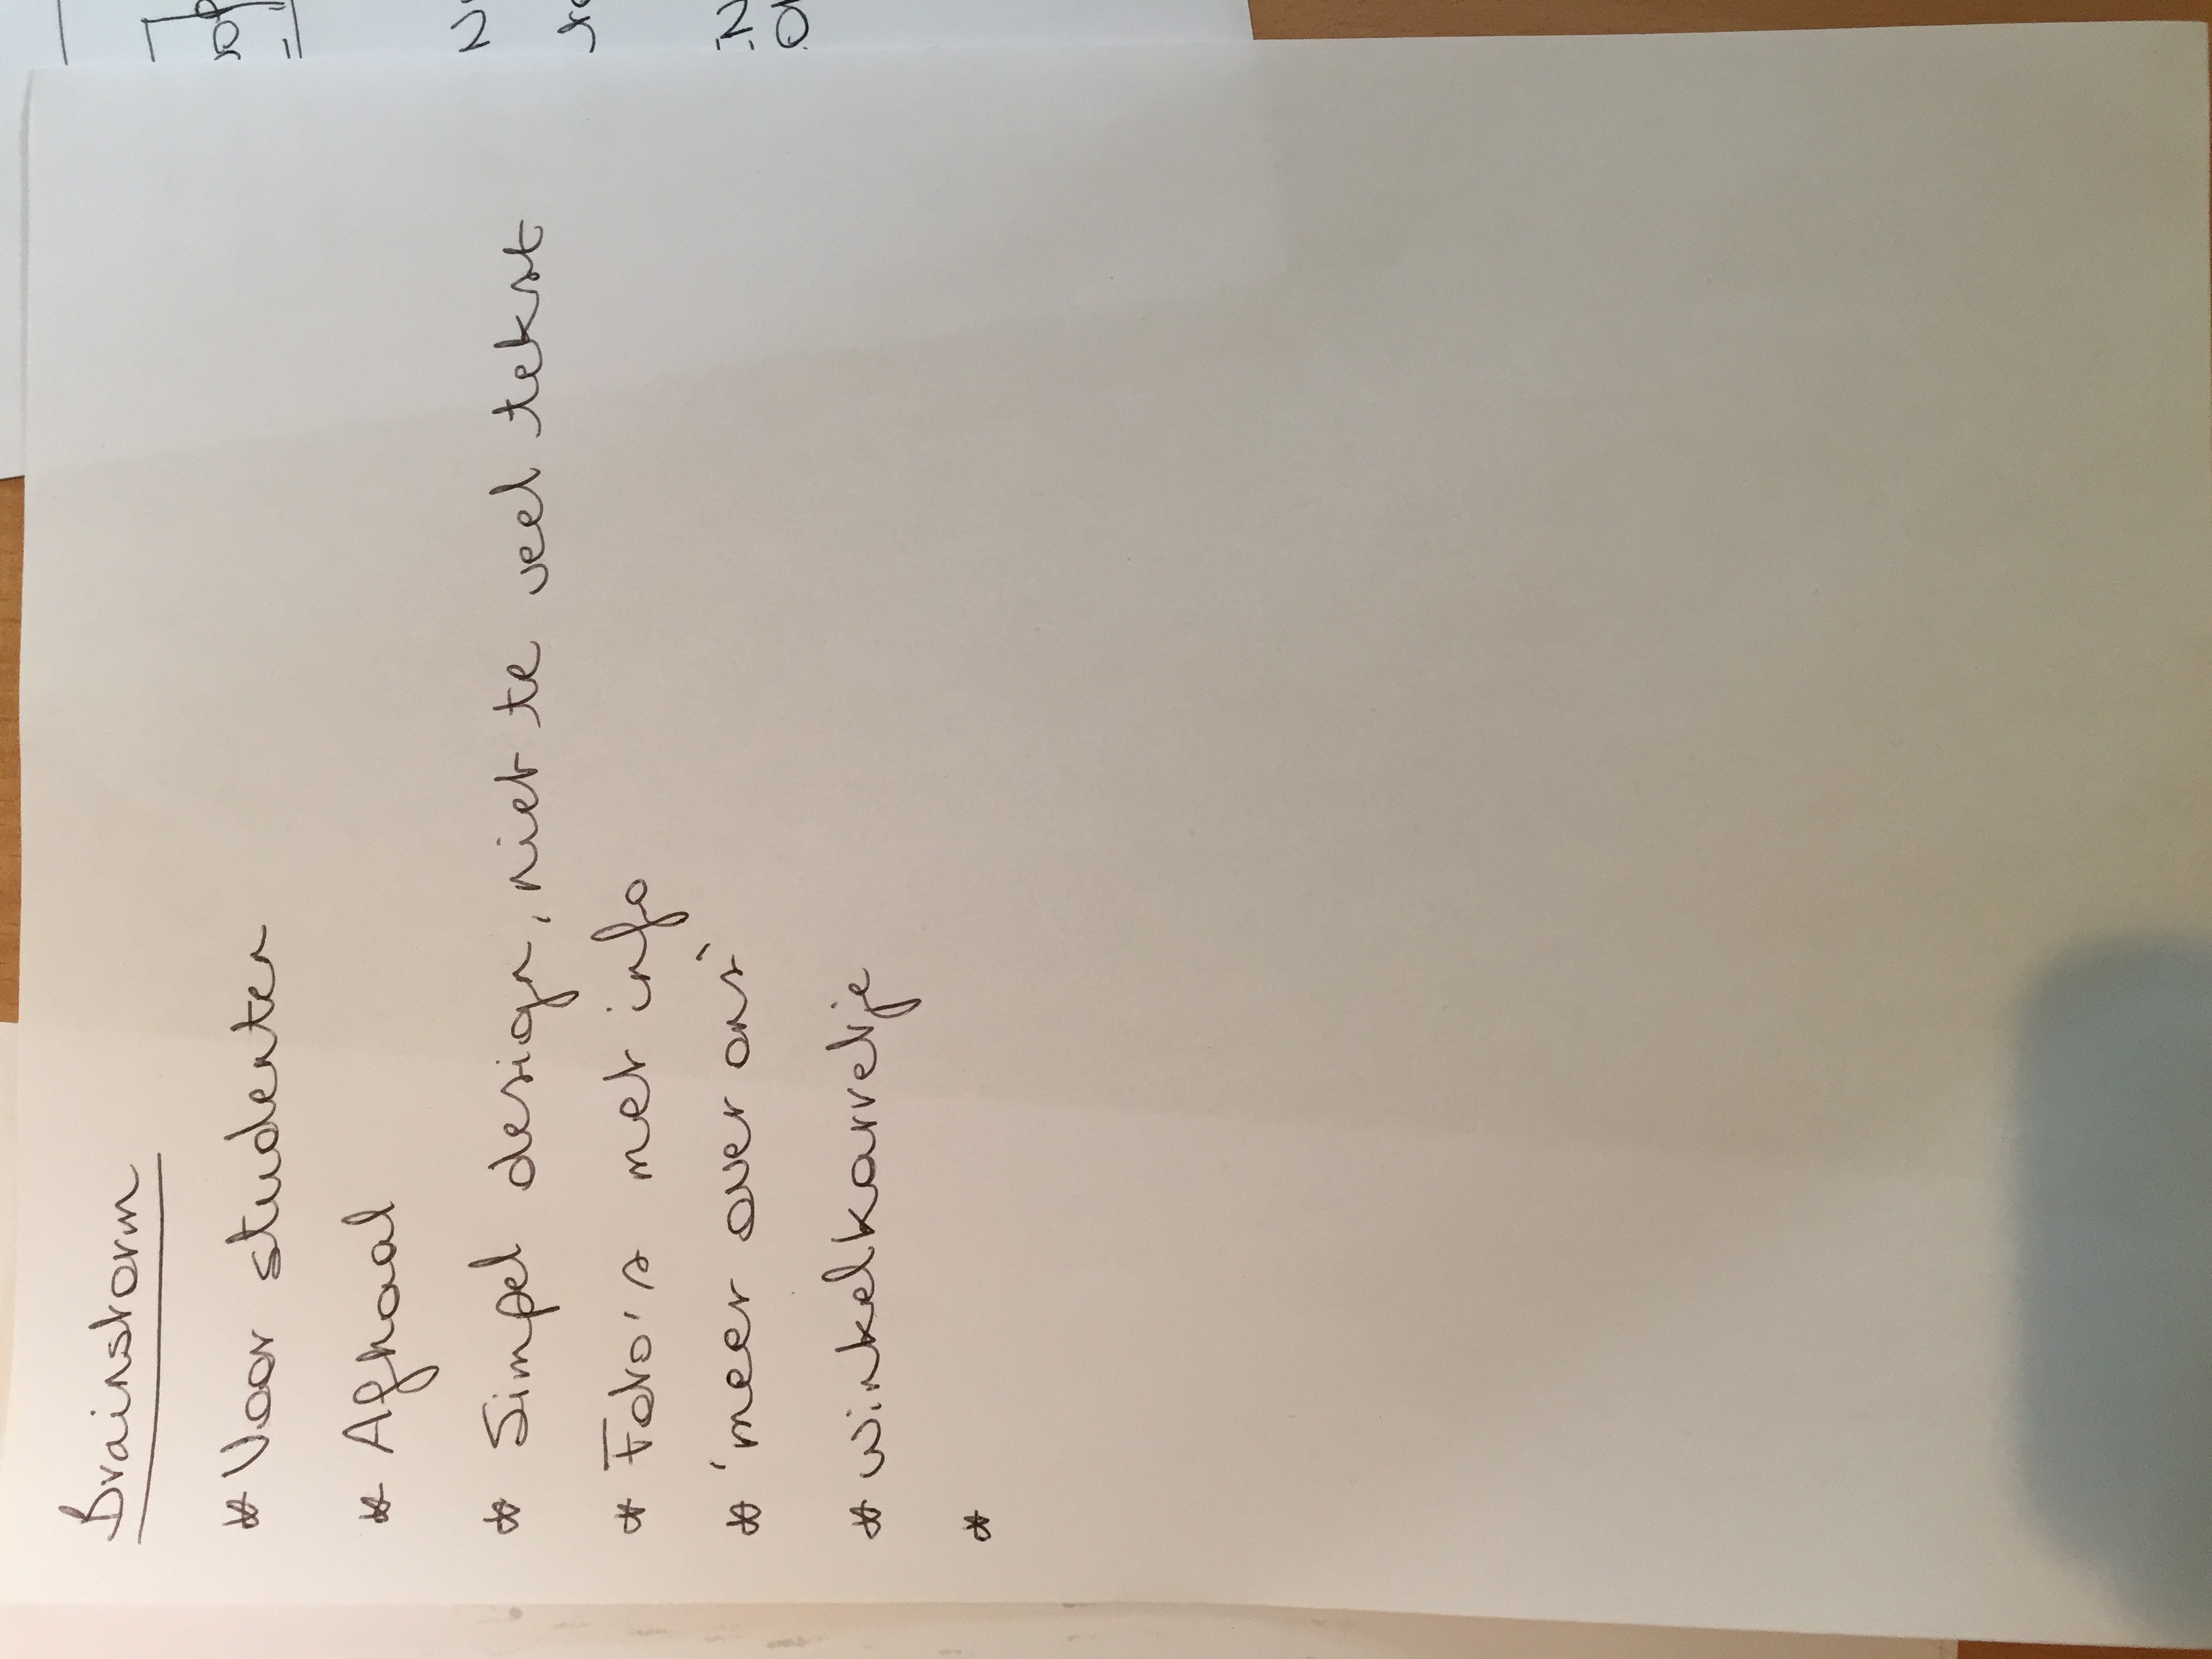 Brainstorm
* Voor studenten
* Afhaal
* Simpel design, niet te veel tekst
* Foto's met info
* 'meer over ons'
* winkelkarretje
*